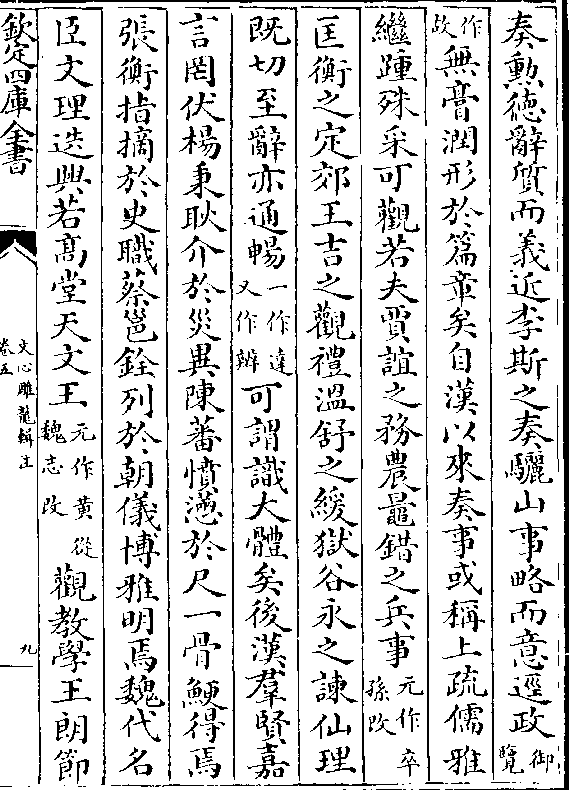 奏勲徳辭質而義近李斯之奏驪山事略而意逕政御覽
作故無膏潤形於篇章矣自漢以來奏事或稱上疏儒雅
繼踵殊采可觀若夫賈誼之務農鼂錯之兵事元作卒孫改
匡衡之定郊王吉之觀禮溫舒之緩獄谷永之諫仙理
既切至辭亦通暢一作達又作辨可謂識大體矣後漢羣賢嘉
言罔伏楊秉耿介於災異陳蕃憤懣於尺一骨鯁得焉
張衡指摘於史職蔡邕銓列於朝儀博雅明焉魏代名
臣文理迭興若髙堂天文王元作黄從魏志改觀教學王朗節
欽定四庫全書
文心雕龍輯注
卷五
九